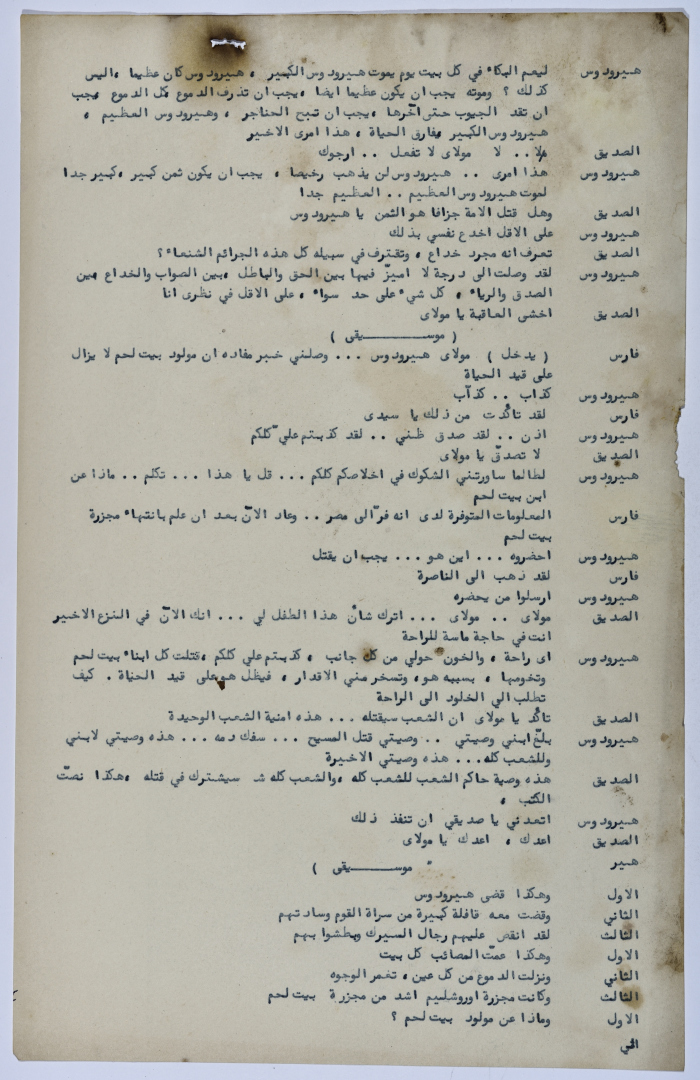 هيرودوس ليعم البكاء في كل بيت يوم يموت هيرودوس الكبير ، هيرودوس كان عظيما ،اليس
كذلك ؟ وموته يجب ان يكون عظيما ايضا ،يجب ان تذرف الدموع ،كل الدموع ،يجب
ان تقد الجيوب حتى آخرها ،يجب ان تبح الحناجر ، وهيرودوس العظيم ،
هيرودوس الكبير ،يفارق الحياة ، هذا امرى الاخير
الصديق لا .. لا مولاى لا تفعل .. ارجوك
هيرودوس هذا امرى .. هيرودوس لن يذهب رخيصا ، يجب ان يكون ثمن كبير ،كبير جدا
لموت هيرودوس العظيم .. العظيم جدا
الصديق وهل قتل الامة جزافا هو الثمن يا هيرودوس
هيرودوس على الاقل اخدع نفسي بذلك
الصديق تعرف انه مجرد خداع ، وتقترف في سبيله كل هذه الجرائم الشنعاء ؟
هيرودوس لقد وصلت الى درجة لا اميزّ فيها بين الحق والباطل ،بين الصواب والخداع ،بين
الصدق والرياء ، كل شيء على حد سواء ، على الاقل في نظرى انا
الصديق اخشى العاقبة يا مولاى
( موســـــيقى )
فارس ( يدخل ) مولاى هيرودوس ... وصلني خبر مفاده ان مولود بيت لحم لا يزال
على قيد الحياة
هيرودوس كذاب .. كذآب
فارس لقد تاكٔدت من ذلك يا سيدى
هيرودوس اذن .. لقد صدق ظني .. لقد كذبتم عليّ كلكم
الصديق لا تصدقّ يا مولاى
هيرودوس لطالما ساورتني الشكوك في اخلاصكم كلكم ... قل يا هذا ... تكلم .. ماذا عن
ابن بيت لحم
فارس المعلومات المتوفرة لدى انه فرّ الى مصر .. وعاد الآن بعد ان علم بانتهاء مجزرة
بيت لحم
هيرودوس احضروه ... اين هو ... يجب ان يقتل
فارس لقد ذهب الى الناصرة
هيرودوس ارسلوا من يحضره
الصديق مولاى .. مولاى ... اترك شأن هذا الطفل لي ... انك الآن في النزع الاخير
انت في حاجة ماسة للراحة
هيرودوس اى راحة ، والخون حولي من كل جانب ، كذبتم علي كلكم ،قتلت كل ابناء بيت لحم
وتخومها ، بسببه هو، وتسخر مني الاقدار ، فيظل هو على قيد الحياة . كيف
تطلب الي الخلود الى الراحة
الصديق تأكد يا مولاى ان الشعب سيقتله ... هذه امنية الشعب الوحيدة
هيرودوس بلغّ ابني وصيتي .. وصيتي قتل المسيح ... سفك دمه ... هذه وصيتي لابني
وللشعب كله... هذه وصيتي الاخيرة
الصديق هذه وصية حاكم الشعب للشعب كله ،والشعب كله شـ سيشترك في قتله ،هكذا نصتّ
الكتب ،
هيرودوس اتعدني يا صديقي ان تنفذ ذلك
الصديق اعدك ، اعدك يا مولاى
هير " موســـــيقى )
الاول وهكذا قضى هيرودوس
الثاني وقضت معه قافلة كبيرة من سراة القوم وسادتهم
الثالث لقد انقض عليهم رجال السيرك وبطشوا بهم
الاول وهكذا عمتّ المصائب كل بيت
الثاني ونزلت الدموع من كل عين ، تغمر الوجوه
الثالث وكانت مجزرة اوروشليم اشد من مجزرة بيت لحم
الاول وماذا عن مولود بيت لحم ؟